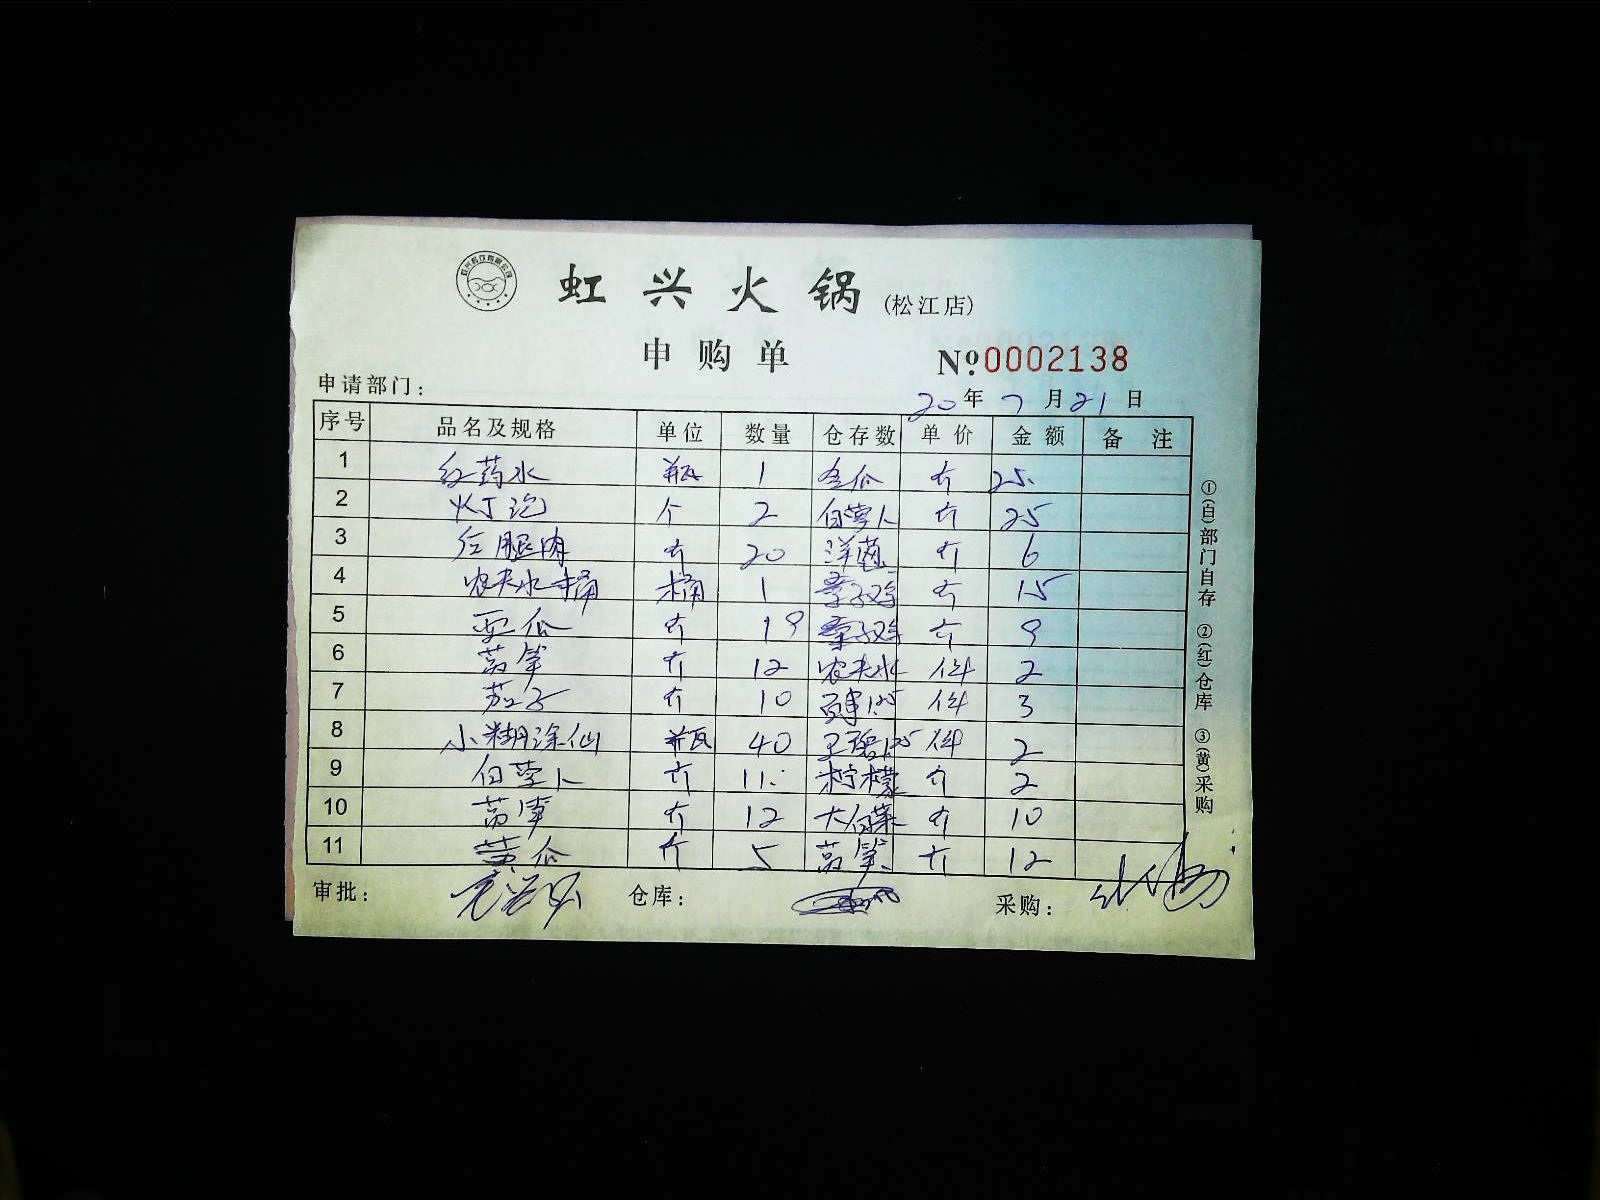 虹兴火锅(松江店)
申购单
№0002138
申请部门:
20年 7月21日
序号 品名及规格 单位 数量 仓存数 单价 金额 备注
1 红药水 瓶 1 冬瓜 斤 25.
2 灯泡 个 2 白萝卜 斤 25
3 后腿肉 斤 20 洋葱 斤 6
4 农夫水桶 桶 1 童子鸡 斤 15
5 瓜 斤 19 童子鸡 斤 9
6 莴笋 斤 12 农夫水 件 2
7 茄子 斤 10 1.25 件 3
8 小糊涂仙 瓶 40 1.25 件 2
9 白萝卜 斤 11 柠檬 斤 2
10 莴笋 斤 12 大白菜 斤 10
11 黄瓜 斤 5 莴笋 斤 12
审批: 仓库: 采购:
①(白)部门自存 ②(红)仓库 ③(黄)采购